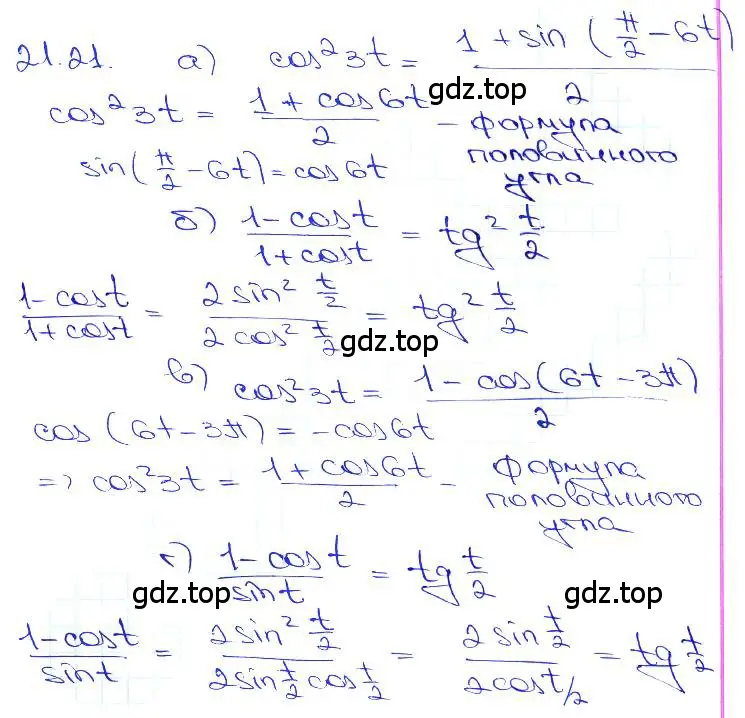 21.21. а) cos²3t = (1 + sin(π/2 − 6t))/2
cos²3t = (1 + cos6t)/2 – формула половинного угла
sin(π/2 − 6t) = cos6t
б) (1 − cost)/(1 + cost) = tg² t/2
(1 − cost)/(1 + cost) = (2 sin² t/2)/(2 cos² t/2) = tg² t/2
в) cos²3t = (1 − cos(6t − 3π))/2
cos(6t − 3π) = −cos6t
=> cos²3t = (1 + cos6t)/2 – формула половинного угла
г) (1 − cost)/sint = tg t/2
(1 − cost)/sint = (2sin² t/2)/(2sin t/2 cos t/2) = (2sin t/2)/(2cos t/2) = tg t/2
gdz.top
gdz.top
gdz.top
gdz.top